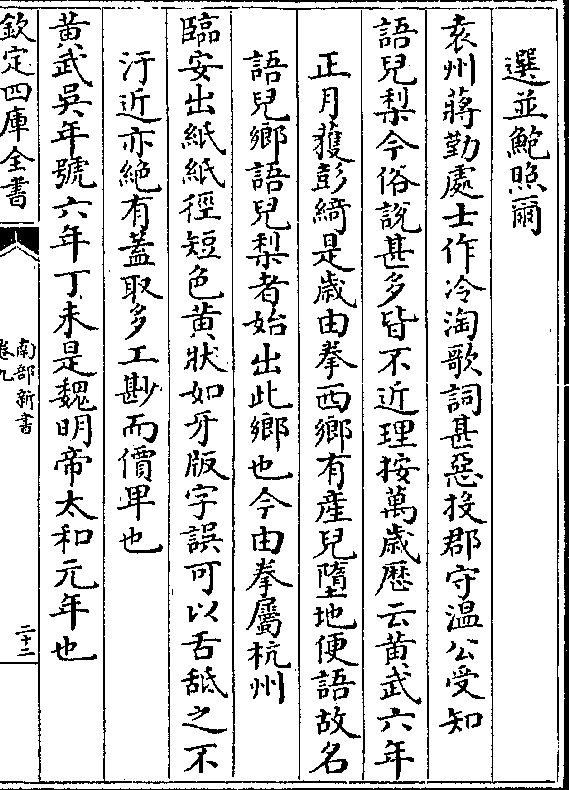 選並鮑照爾
袁州蔣勤處士作冷淘歌詞甚惡投郡守温公受知
語兒梨今俗說甚多皆不近理按萬歳歴云黄武六年
正月獲彭綺是歳由拳西鄉有産兒墮地便語故名
語兒鄉語兒梨者始出此鄉也今由拳屬杭州
臨安出紙紙徑短色黄狀如牙版字誤可以舌舐之不
汙近亦絶有蓋取多工尠而價卑也
黄武吳年號六年丁未是魏明帝太和元年也
欽定四庫全書
南部新書
卷九
二十二